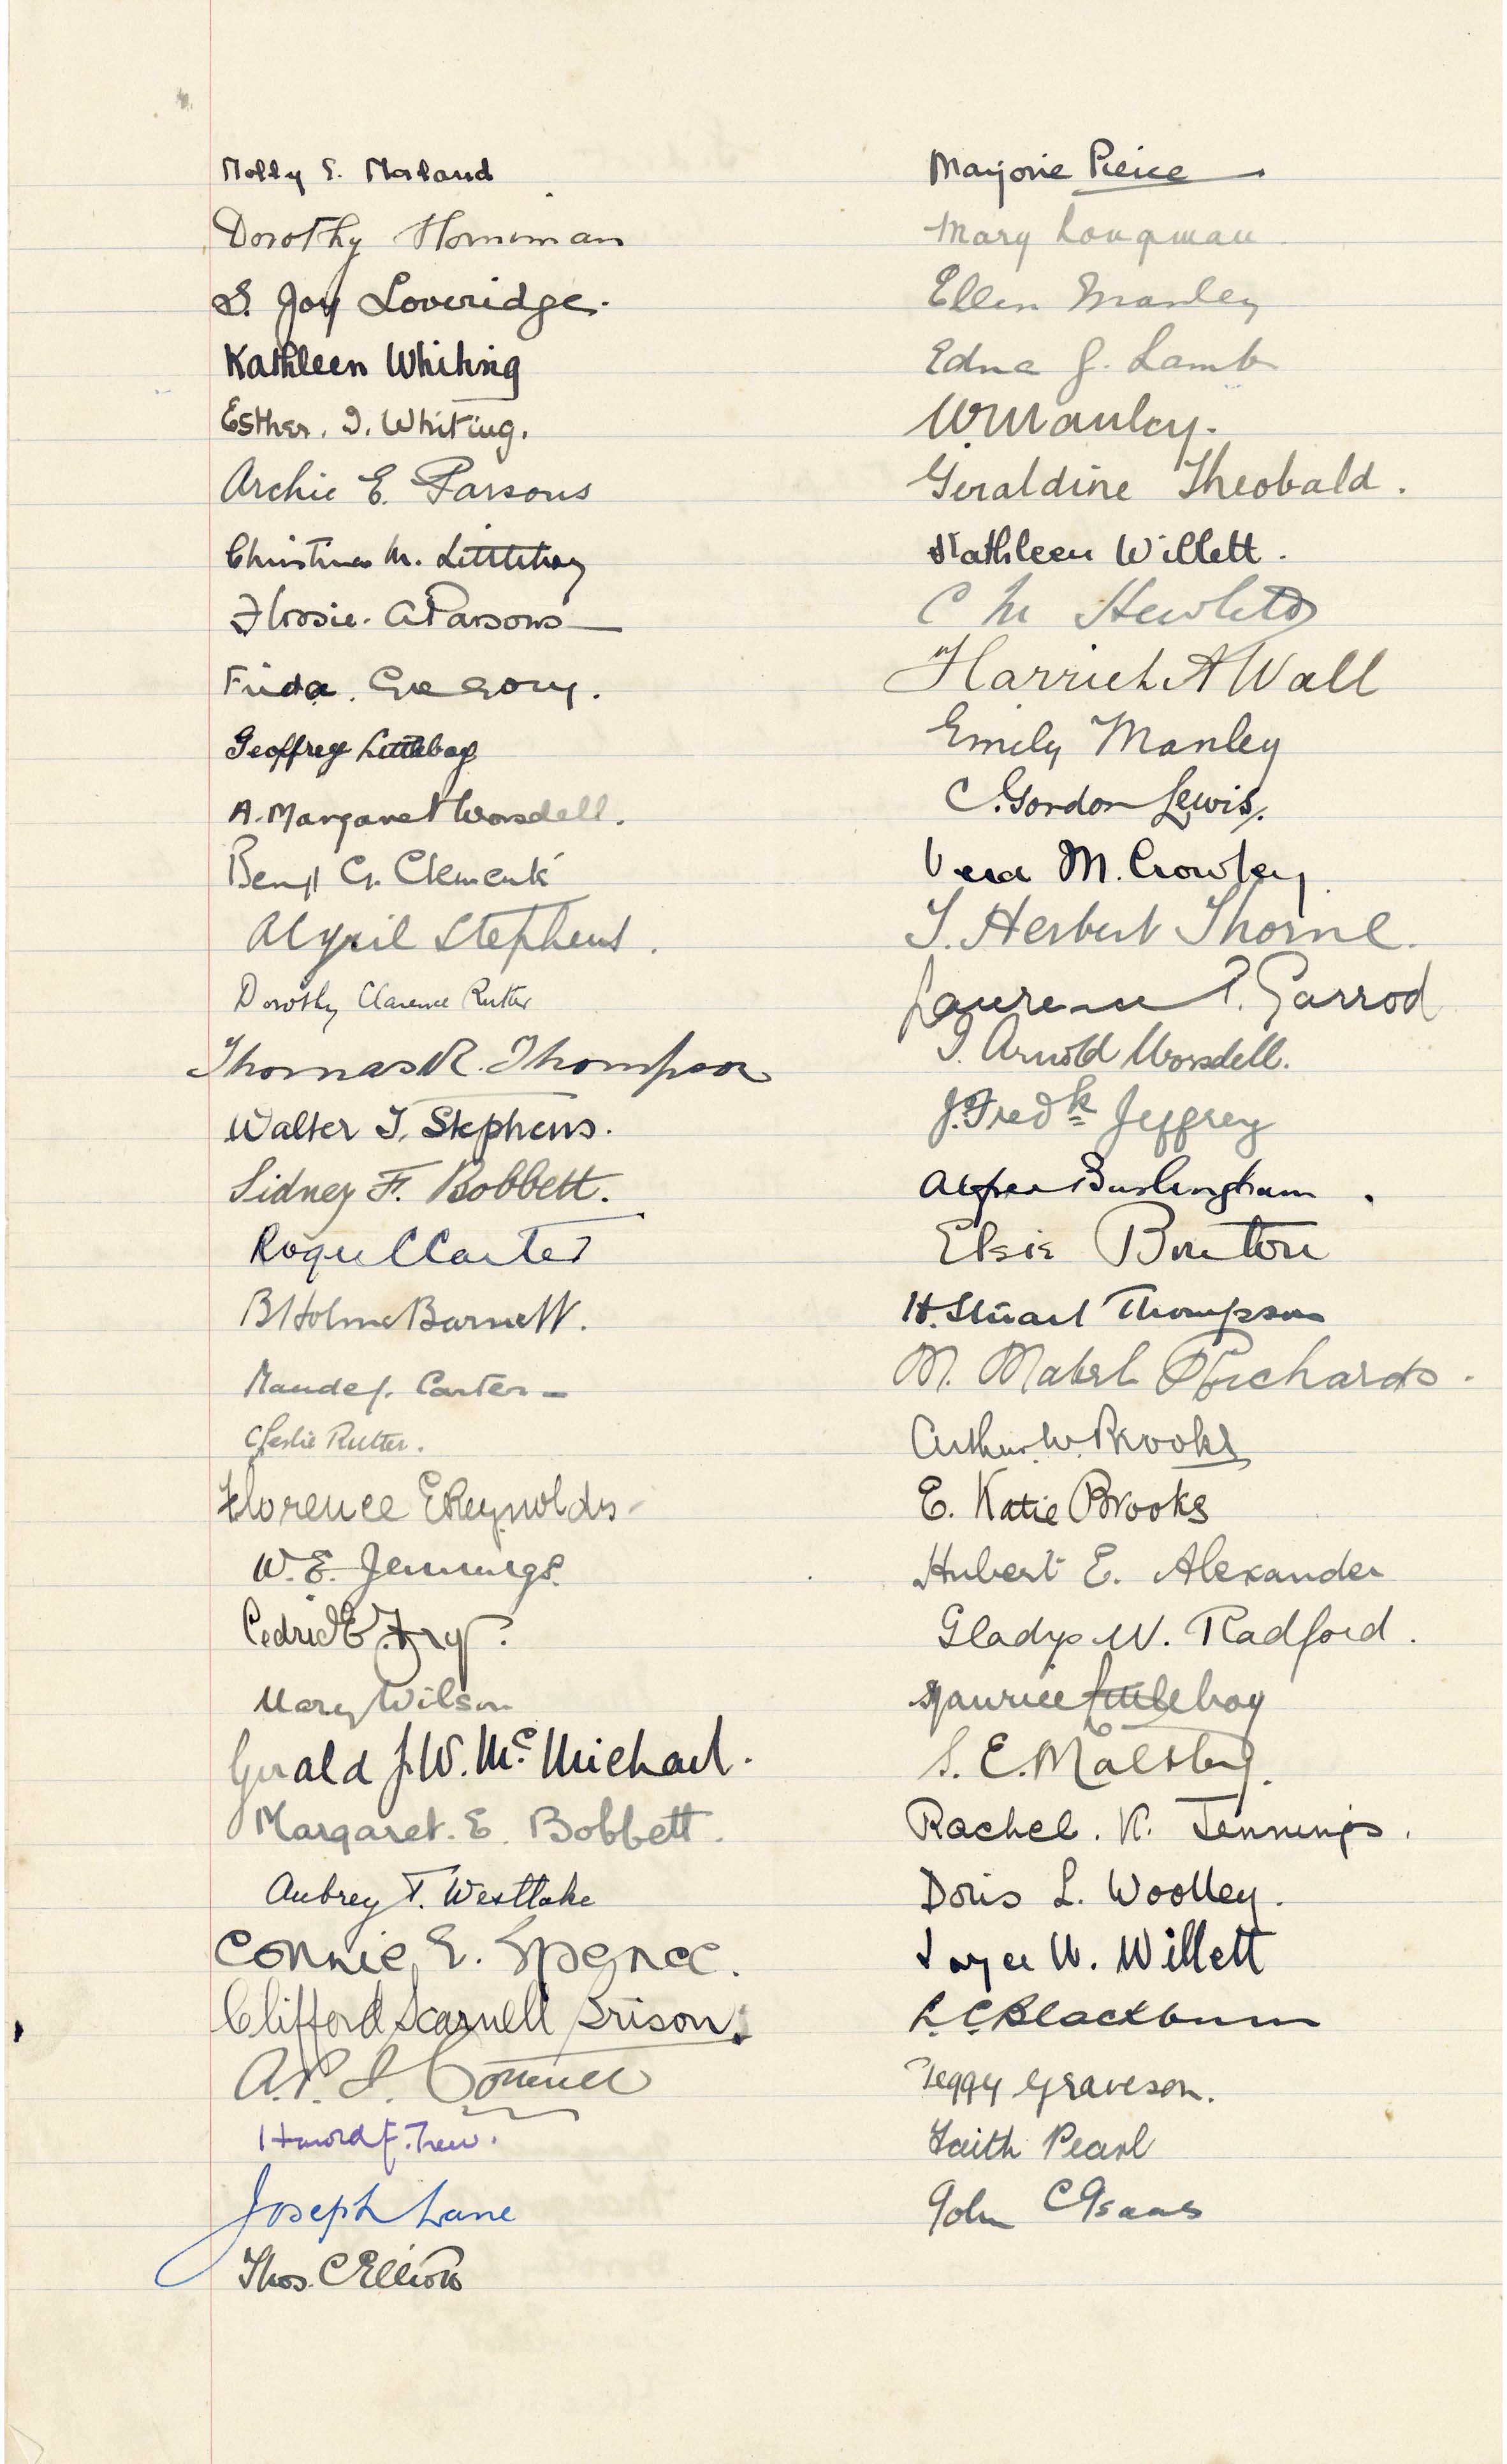 Molly E.
Dorothy Horniman
S. Joy Loveridge.
Kathleen Whiting
Esther. I. Whiting.
Archie E. Parsons
Christina M. Littleboy
Flossie. A Parsons
Frida. Gregory.
Geoffrey Littleboy
A. Margaret Worsdell.
G. Clements
Stephens.
Dorothy Clarence Rutter
Thomas R. Thompson
Walter T. Stephens.
Sidney F. Bobbett.
Roger C Carter
B Holme Barnett.
Maude J. Carter
C Leslie Rutter.
Florence E Reynolds
W. E. Jennings.
Cedric E. Fry.
Mary Wilson
Gerald J. W. McMichael.
Margaret. E. Bobbett.
Aubrey T. Westlake
Connie E. Spence.
Clifford Scarnell
A. P. I. Cotterell
Harold F. Trew.
Joseph Lane
Thos. C Elliott
Marjorie Peirce
Mary Longman
Ellen Manley
Edna J. Lamb
W Manley.
Geraldine Theobald.
Kathleen Willett.
C M
Harriet A Wall
Emily Manley
C. Gordon Lewis.
Vera M. Crowley
T. Herbert Thorne.
Laurence P. Garrod
T. Arnold Worsdell.
J. Fredk Jeffrey
Burlingham.
Elsie
H. Stuart Thompson
M. Mabel Richards.
Arthur W. Brooks
E. Katie Brooks
Hubert E. Alexander
Gladys W. Radford.
Maurice Littleboy
S. E. Maltby.
Rachel. K. Jennings.
Doris L. Woolley.
Joyce W. Willett
C Blackburn
Peggy Graveson.
Faith Pearl
John C Isaacs